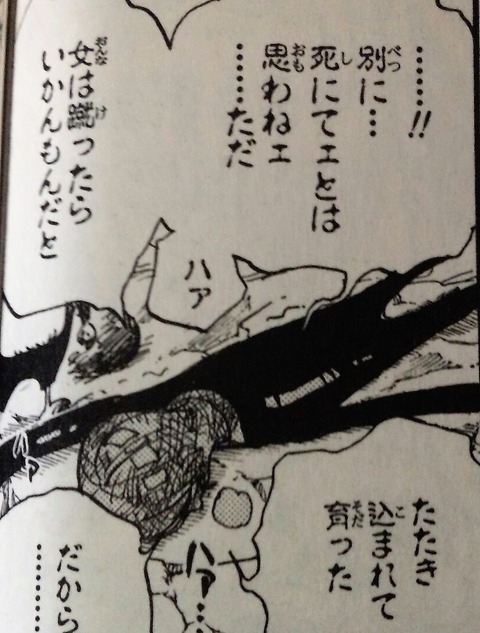 ……!!
別に…
死にてェとは
思わねェ
……ただ
女は蹴ったら
いかんもんだと
ハァ
たたき
込まれて
育った
ハァ…
だから
……